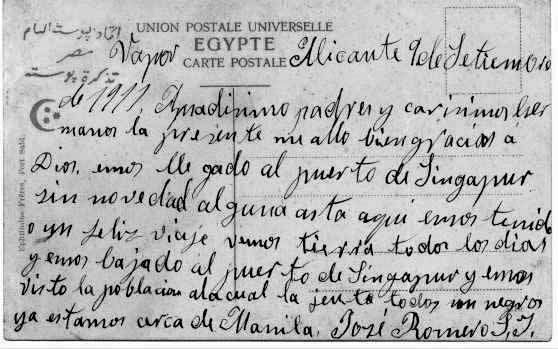 اتحاد پوسته العام
UNION POSTALE UNIVERSELLE
مصر
EGYPTE
تذكرة بوسته
CARTE POSTALE
Vapor Alicante 9 de Setiembre
de 1911. Amadisimo padres y carinimos her
manos la presente me allo bien gracias a
Dios, emos lle gado al puerto de Singapur
sin novedad alguna asta aqui emos tenid
o un feliz viaje vemos tierra todos los dias
y emos bajado al puerto de Singapur y emos
visto la poblacion ala cual la jente todos son negros
ya estamos cerca de Manila. José Romero S.J.
Ephtimios Frères, Port Saïd.